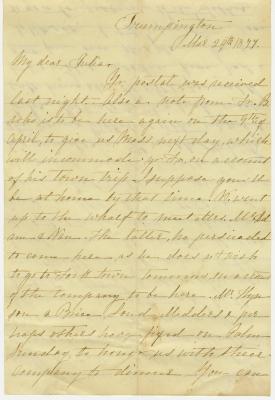 Trumpington
Mar 29th 1877.
My dear Julia,
Yr postal was received
last night. Also a note from Fr. B
who is to be here again on the
April, to give us Mass next day, which
will incommode yr Fr, on account
of his town trip. I suppose you'll
be at home by that time. W. went
up to the wharf to meet Mrs.
am & Nan. The latter, he persuaded
to come here, as he does n't wish
to go to town tomorrow on acc
of the company to be here. Mr. Hyn
son & Brice, Loud, Medders & per
haps others have fixed on
Sunday to honor us with their
company to dinner. You can